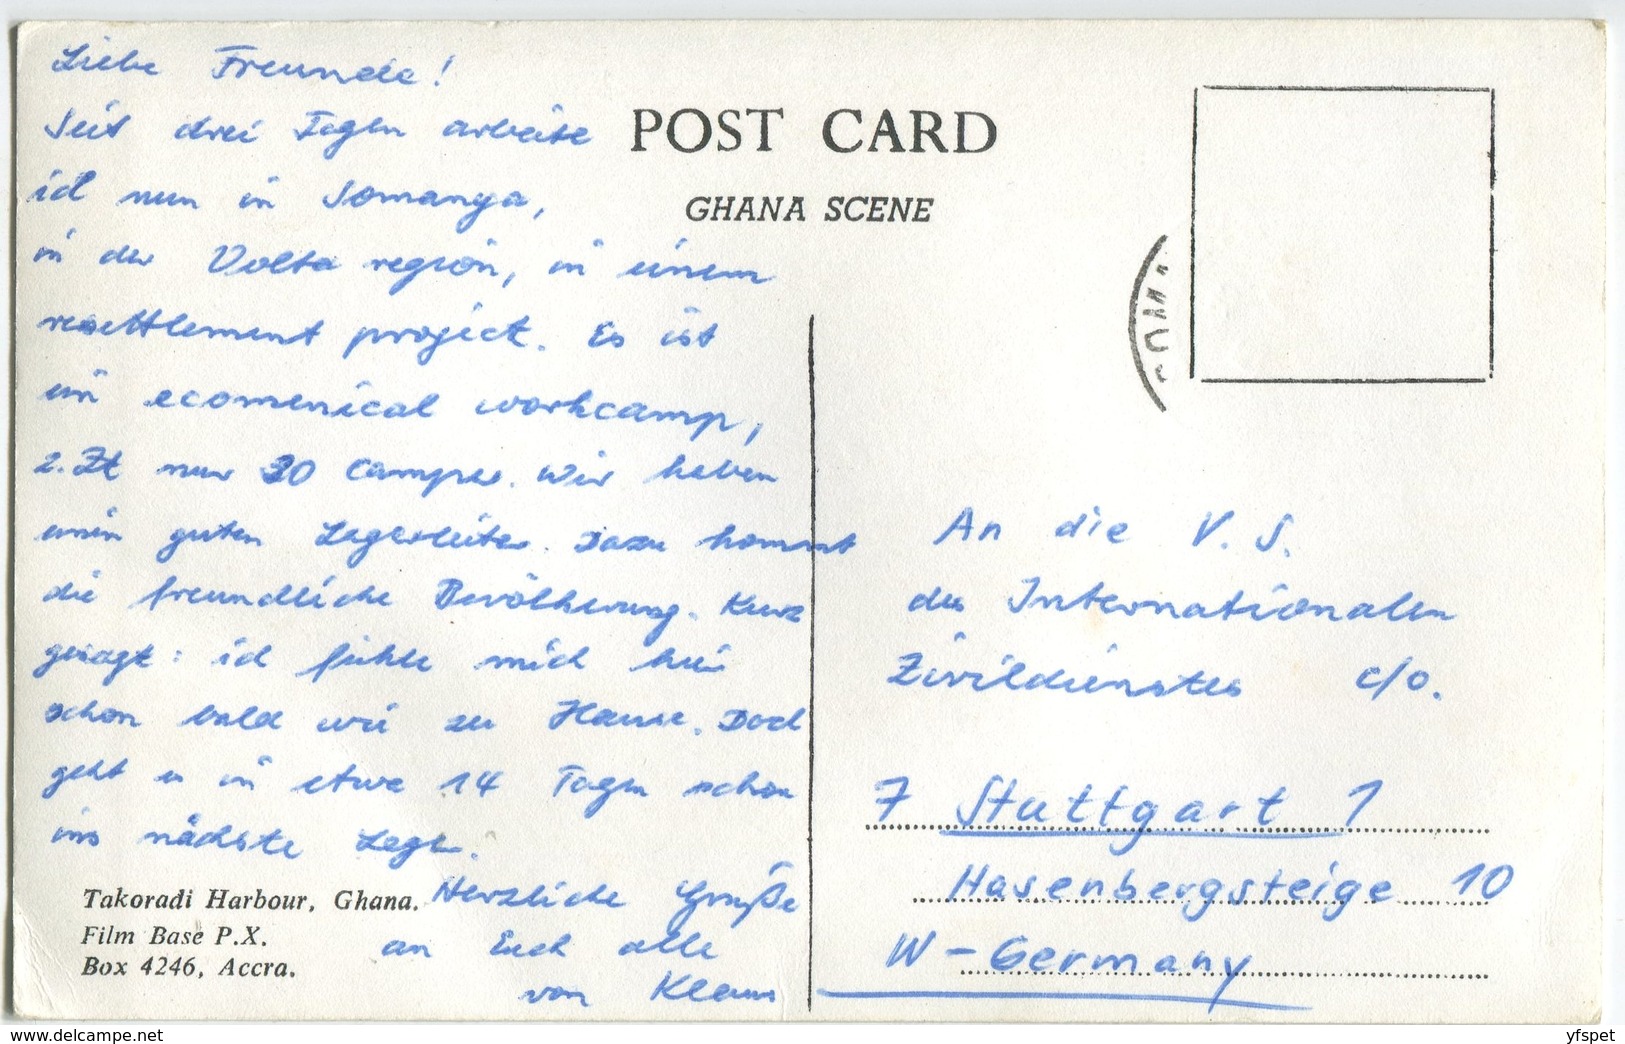 Liebe Freunde!
Seit drei Tagen arbeite
ich nun in Somanya,
in der Volta region, in einem
resettlement project. Es ist
ein ecomenical workcamp,
z. Zt nur 30 Camper. Wir haben
einen guten Lagerleiter. Dazu kommt
die freundliche Bevölkerung. Kurz
gesagt: ich fühle mich hier
schon bald wie zu Hause. Doch
geht es in etwa 14 Tagen schon
ins nächste Lager.
Herzliche Grüße
an Euch alle
von Klaus
Takoradi Harbour, Ghana.
Film Base P.X.
Box 4246, Accra.
POST CARD
GHANA SCENE
An die V. S.
des Internationalen
Zivildienstes c/o.
7 Stuttgart 1
Hasenbergsteige 10
W-Germany
delcampe.net
yfspet